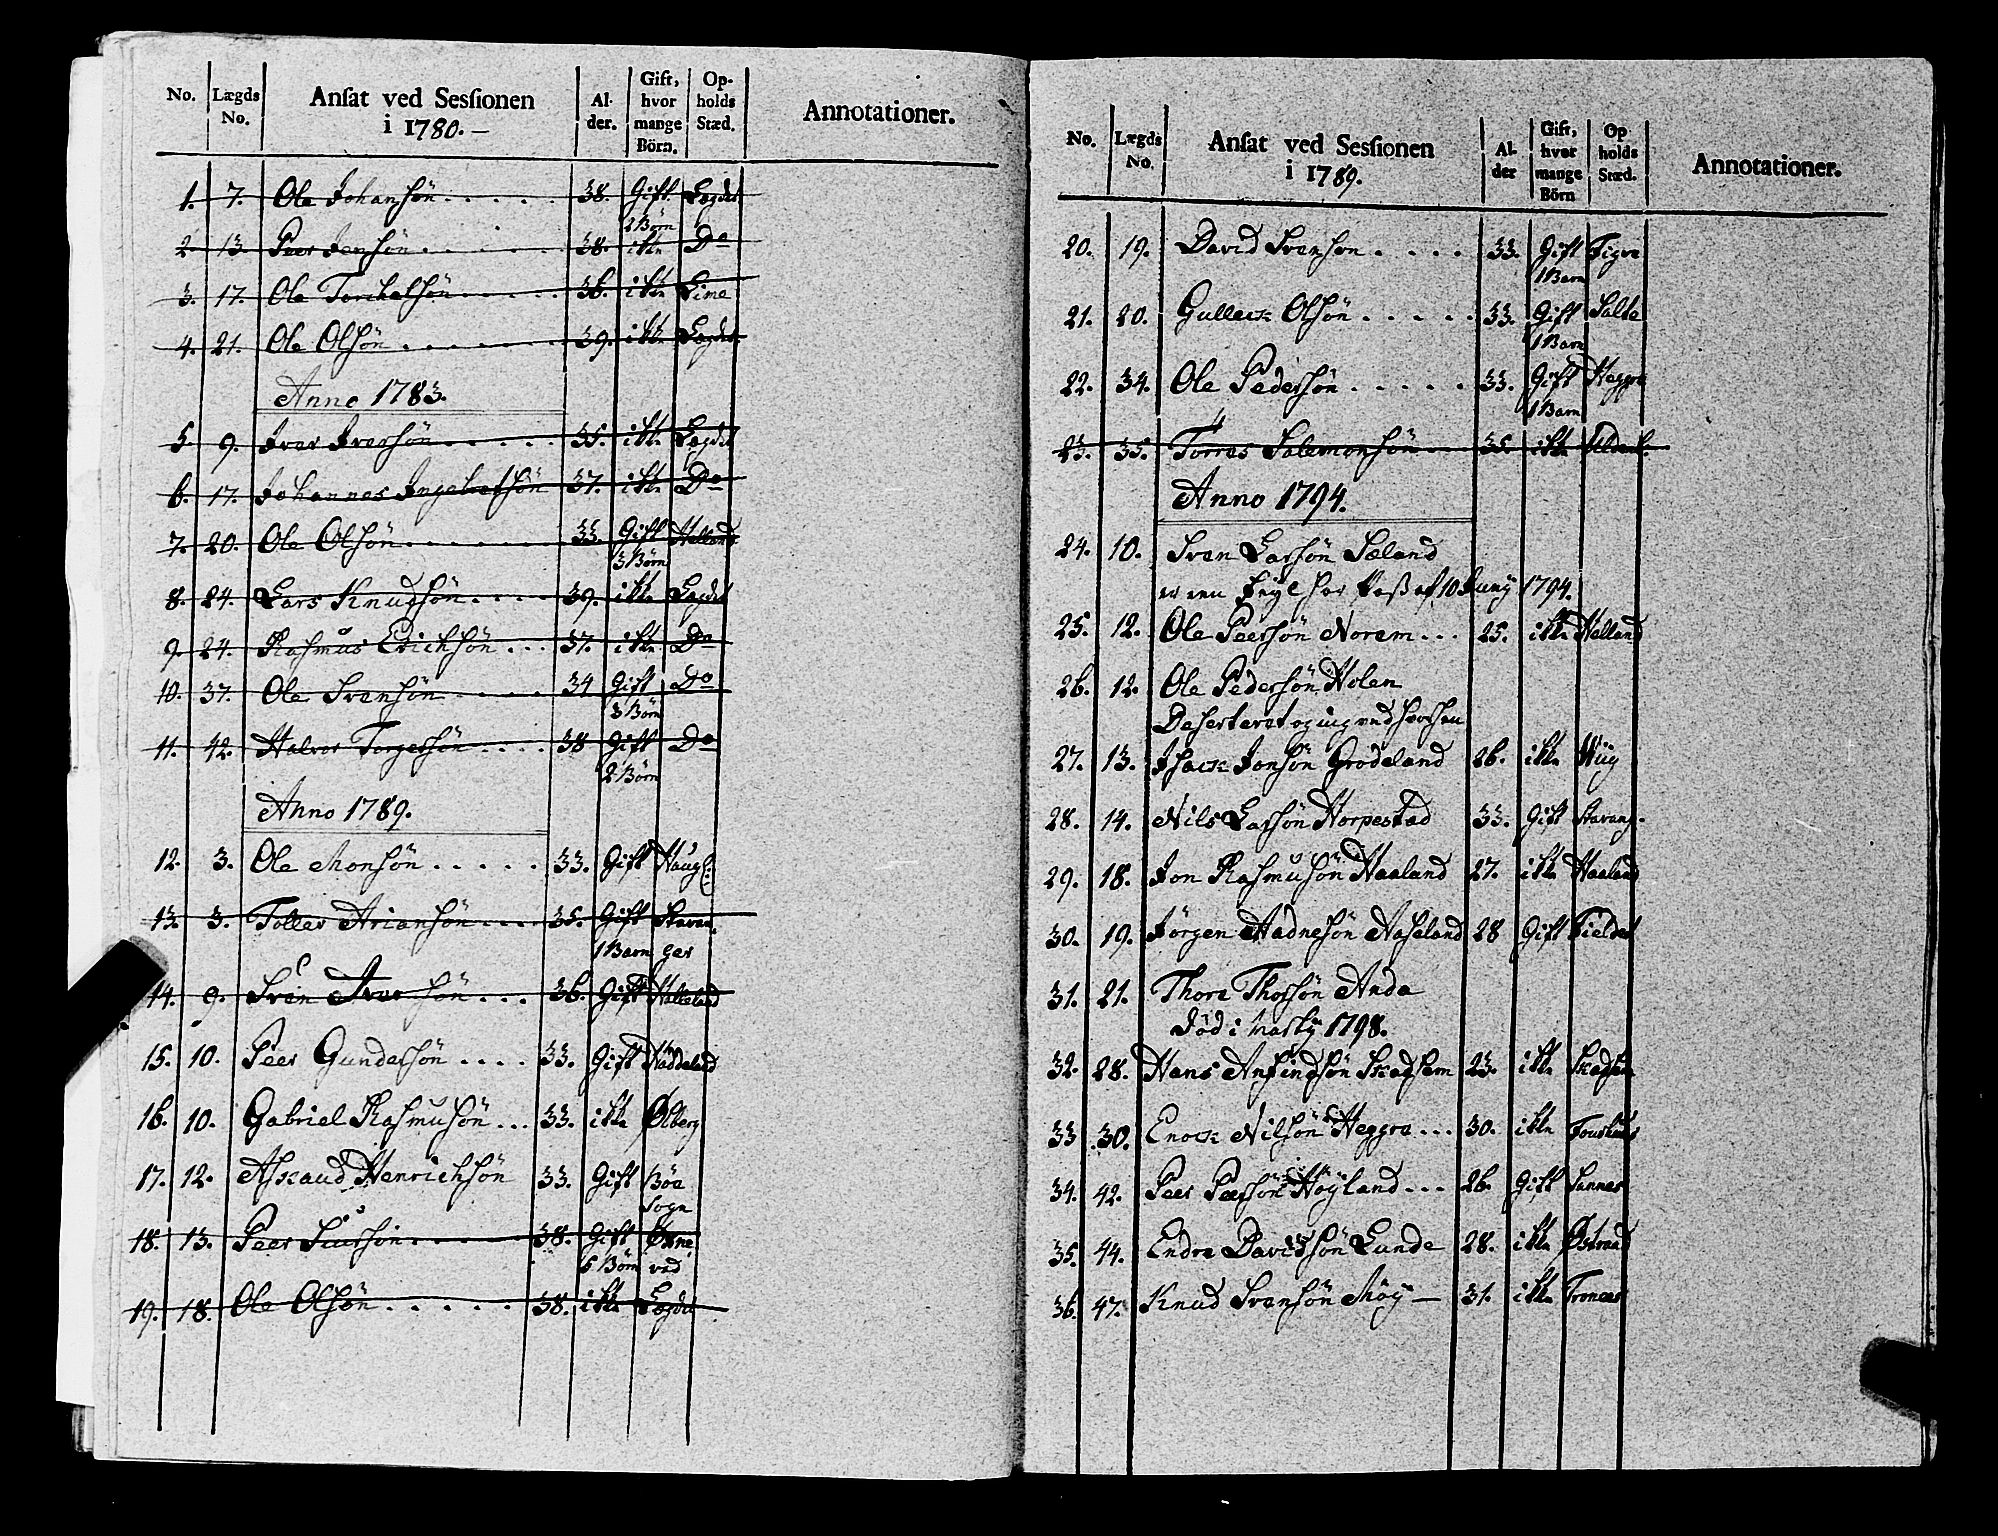 No. Lægds No. Ansat ved Sessionen i 1780.— Al-der. Gift, hvor mange Börn. Op-holds Stæd. Annotationer.
1. 7. Ole Johansön 38. Gift Lægdet
2 Börn
2. 13. Peer Jensön 38. ikke Do
3. 17. Ole Torchelsön 36. ikke Lime
4. 21. Ole Olsön 39. ikke Lægdet
Anno 1783.
5. 9. Iver Iversön 35. ikke Lægdet
6. 17. Johannes Ingebretsön 37. ikke Do
7. 20. Ole Olsön 33. Gift Helland
3 Börn
8. 24. Lars Knudsön 39. ikke Lægdet
9. 24. Rasmus Erichsön 37. ikke Do
10. 37. Ole Svensön 34 Gift Do
3 Börn
11. 42. Halvor Torgersön 38 Gift Do
2 Börn
Anno 1789.
12. 3. Ole Monsön 33. Gift Haug
13. 3. Tollev Ariansön 35. Gift Stavan-
1 Barn ger
14. 9. Sven Iversön 36. Gift
15. 10. Peer Gundersön 33. Gift Häddeland
16. 10. Gabriel Rasmusön 33. ikke Ølberg
17. 12. Henrichsön 33. Gift Böe
Sogn
18. 13. Peer Siursön 38. Gift
5 Börn ved
19. 18. Ole Olsön 38. ikke Lægdet
No. Lægds No. Ansat ved Sessionen i 1789. Al-der Gift, hvor mange Börn Op holds Stæd. Annotationer.
20. 19. David Svensøn 33. Gift Tigre
1 Barn
21. 20. Gulleck Olsön 33. Gift Salte
1 Barn
22. 34. Ole Pedersön 33. Gift Hegre
1 Barn
23. 35. Torres Salemonsön 35. ikke
Anno 1794.
24. 10. Sven Larsön Sæland
har Pass af 10 Juny 1794.
25. 12. Ole Peersön Norem 25. ikke Helland
26. 12. Ole Pedersön Holen
Deserteret
27. 13. Isack Jonsön Grödeland 26. ikke Wiig
28. 14. Nils Larsön Horpestad 33. Gift Stavang.
29. 18. Jon Rasmusön Haaland 27. ikke Haaland
30. 19. Jörgen Aadnesön Aaseland 28 Gift Fieldet
31. 21. Thore Thorsön Anda
död i Marty 1798.
32. 28. Hans Anfindsön Skadsem 23. ikke Skadsem
33 30. Enock Nilsön Heggre 30. ikke
34. 42. Peer Peersön Höyland 26. Gift Sannes
35. 44. Endre Davidsön Lunde 28. ikke Østraad
36. 47. Knud Svensön Möy — 31. ikke Tronæs